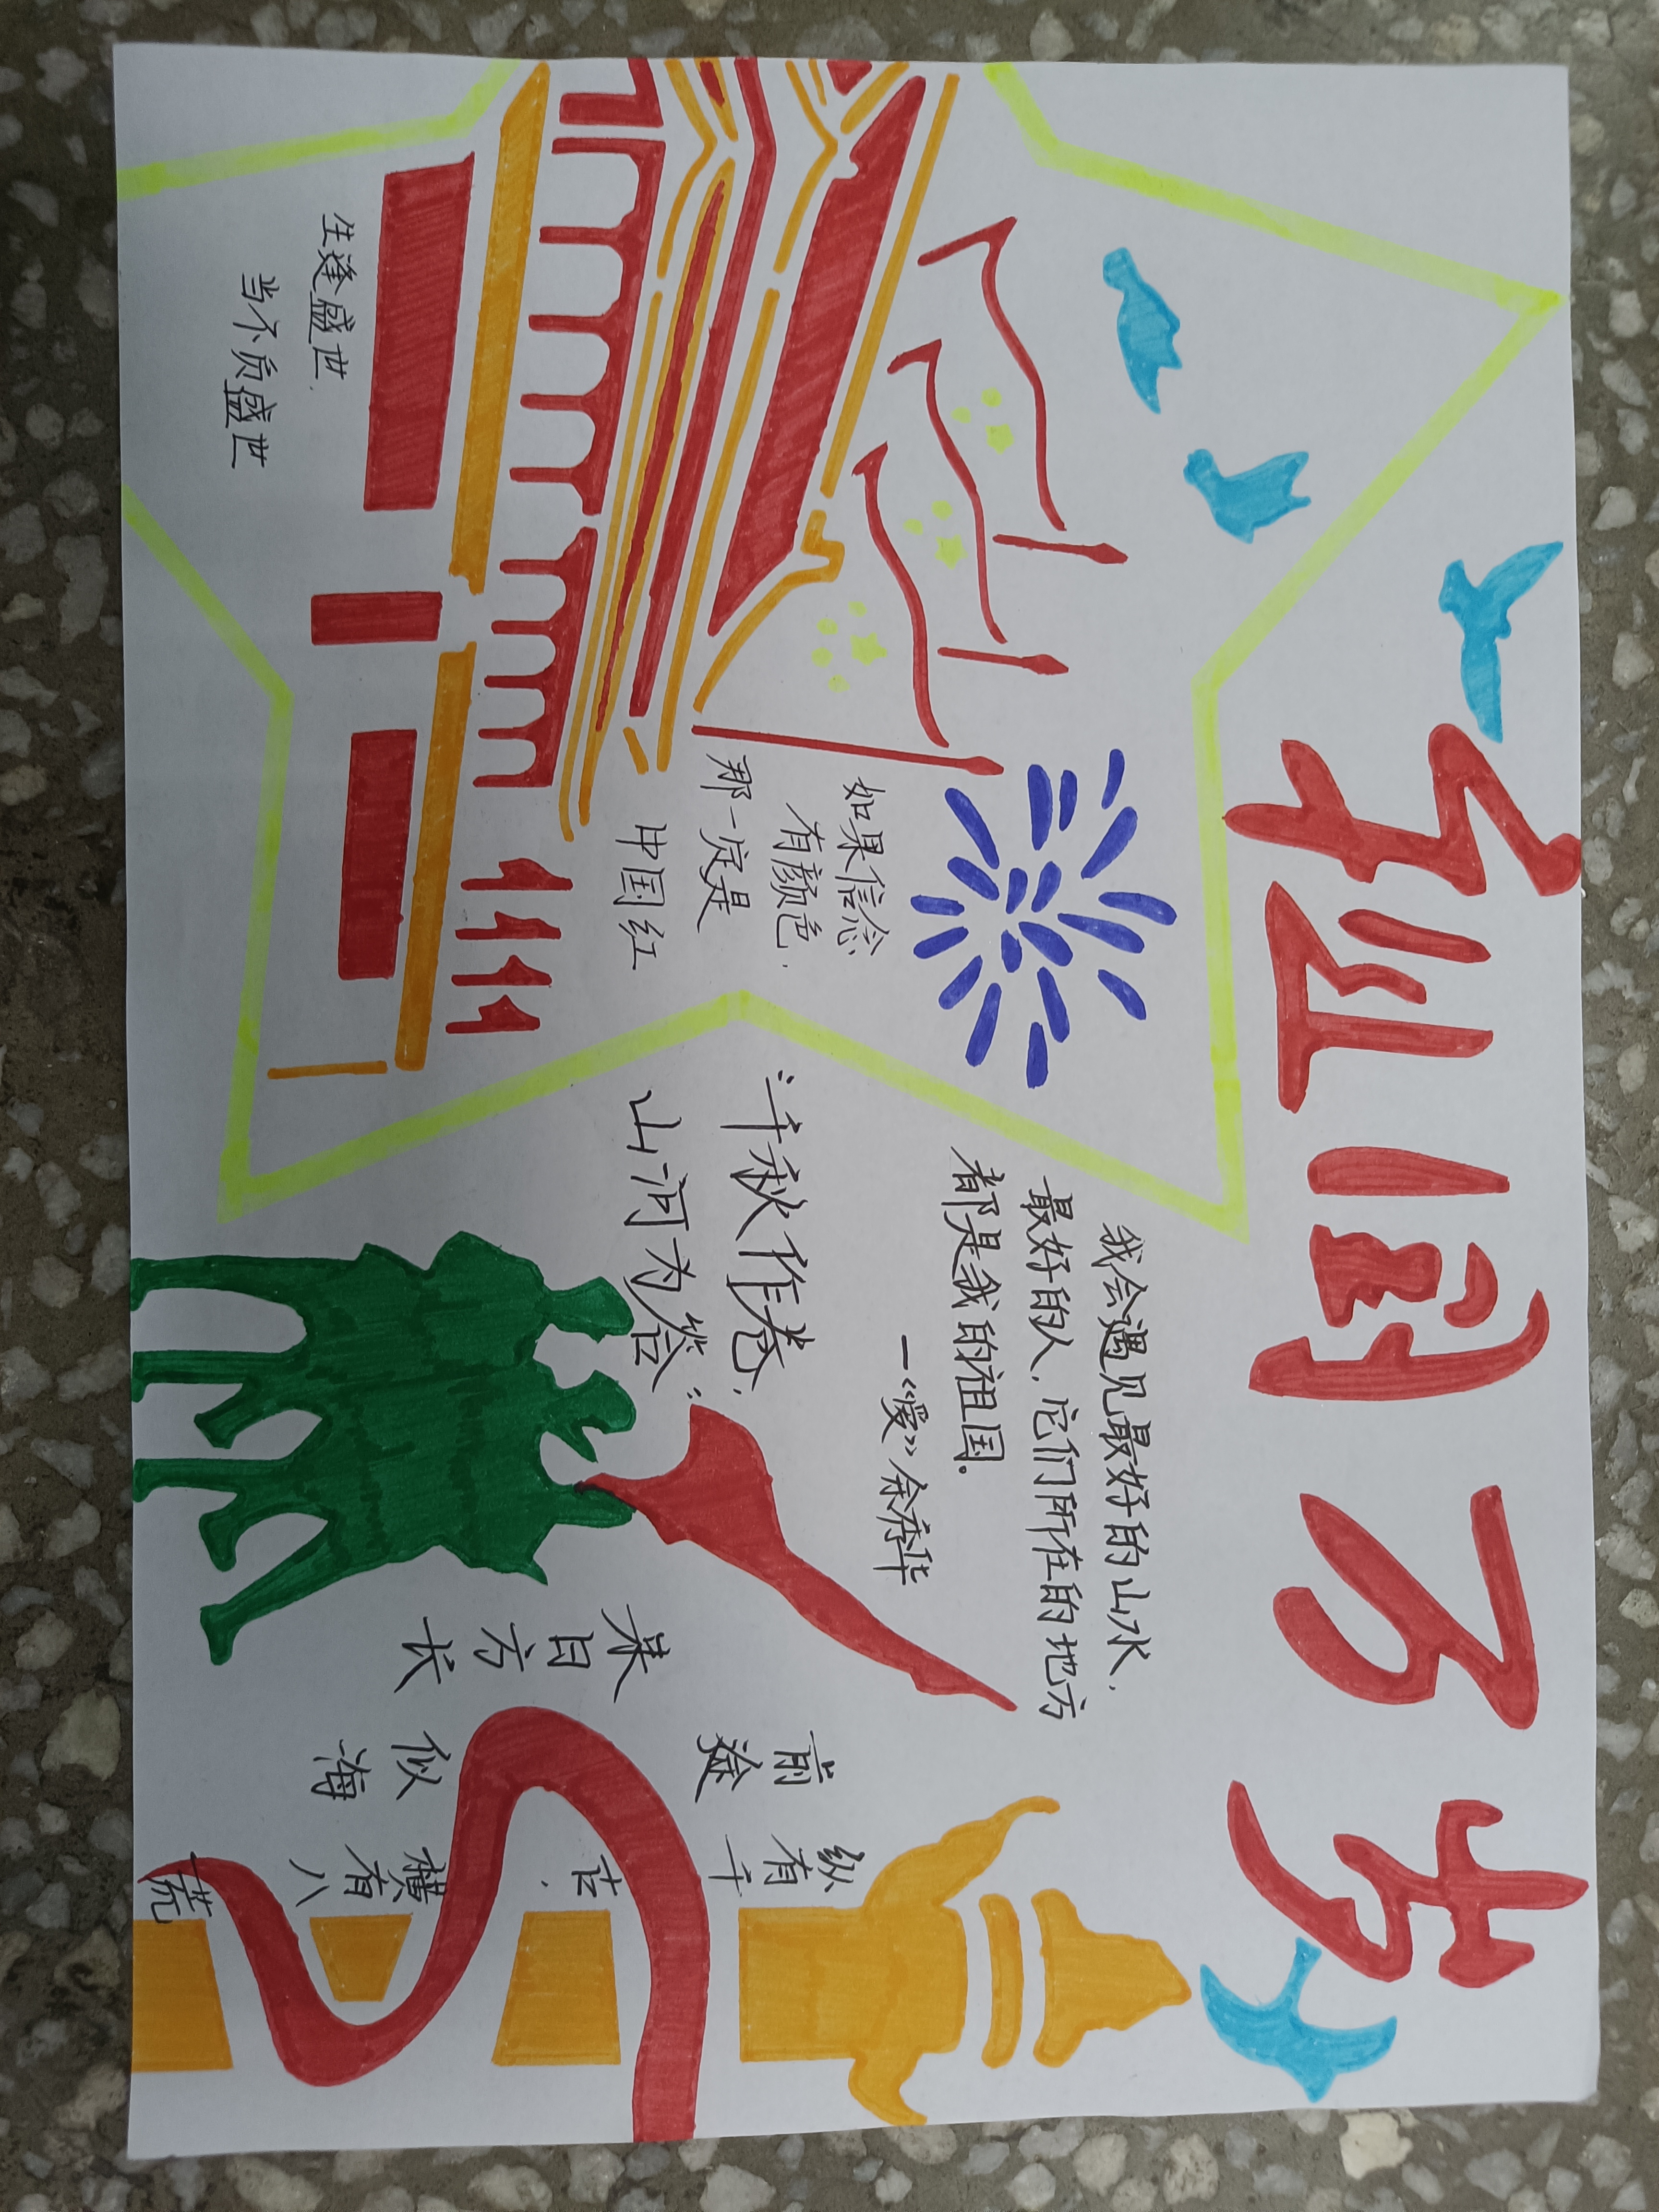 祖国万岁
我会遇见最好的山水，
最好的人，它们所在的地方
都是我的祖国。
一《爱》余秀华
如果信念
有颜色，
那一定是
中国红
“千秋作卷，
山河为答”
生逢盛世，
当不负盛世
纵有千古，横有八荒
前途似海
来日方长